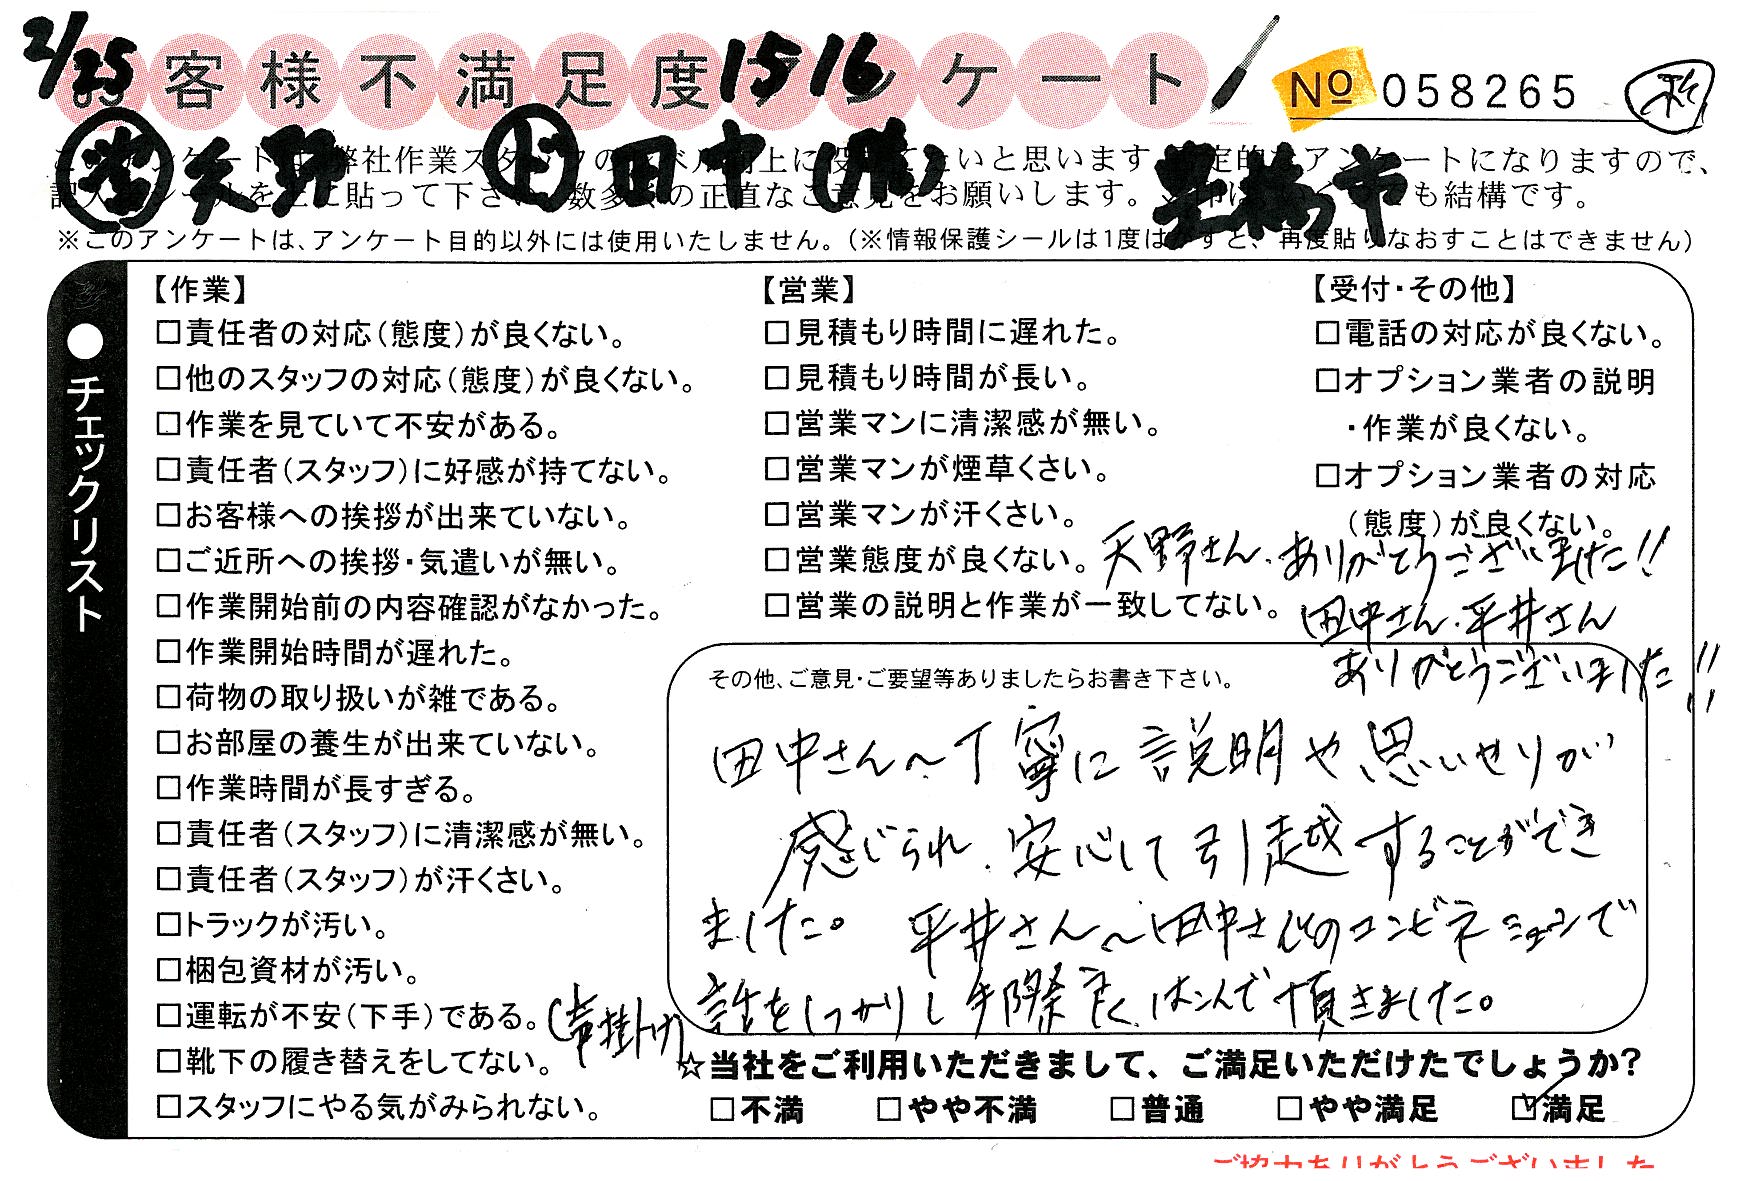 2/25
お客様不満足度アンケート
1516
No 058265
営 天野 ド 田中(勝) 豊橋市
※このアンケートは、アンケート目的以外には使用いたしません。(※情報保護シールは1度はがすと、再度貼りなおすことはできません)
●チェックリスト
【作業】
□責任者の対応(態度)が良くない。
□他のスタッフの対応(態度)が良くない。
□作業を見ていて不安がある。
□責任者(スタッフ)に好感が持てない。
□お客様への挨拶が出来ていない。
□ご近所への挨拶・気遣いが無い。
□作業開始前の内容確認がなかった。
□作業開始時間が遅れた。
□荷物の取り扱いが雑である。
□お部屋の養生が出来ていない。
□作業時間が長すぎる。
□責任者(スタッフ)に清潔感が無い。
□責任者(スタッフ)が汗くさい。
□トラックが汚い。
□梱包資材が汚い。
□運転が不安(下手)である。
□靴下の履き替えをしてない。
□スタッフにやる気がみられない。
【営業】
□見積もり時間に遅れた。
□見積もり時間が長い。
□営業マンに清潔感が無い。
□営業マンが煙草くさい。
□営業マンが汗くさい。
□営業態度が良くない。
□営業の説明と作業が一致してない。
【受付・その他】
□電話の対応が良くない。
□オプション業者の説明
・作業が良くない。
□オプション業者の対応
(態度)が良くない。
天野さん、ありがとうございました!!
田中さん、平井さん
ありがとうございました!!
その他、ご意見・ご要望等ありましたらお書き下さい。
田中さん〜丁寧に説明や思いやりが
感じられ、安心して引越することができ
ました。平井さん〜田中さんとのコンビネーションで
(声掛け)
話をしっかりし手際良く、はこんで頂きました。
☆当社をご利用いただきまして、ご満足いただけたでしょうか?
□不満 □やや不満 □普通 □やや満足 ☑満足
ご協力ありがとうございました